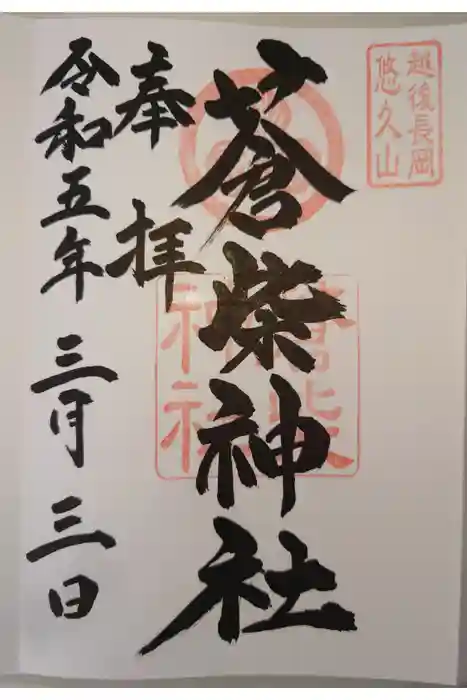 越後長岡
悠久山
蒼柴神社
蒼柴
神社
奉拝
令和五年三月三日